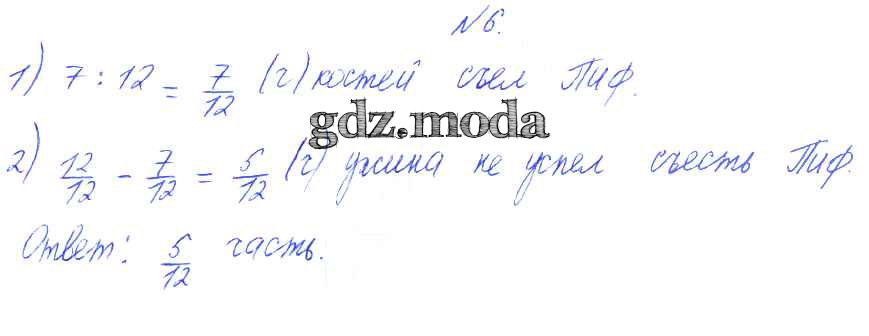 №6.
1) 7 : 12 = 7/12 (ч) костей съел Пиф.
gdz.moda
2) 12/12 - 7/12 = 5/12 (ч) ужина не успел съесть Пиф.
Ответ: 5/12 часть.